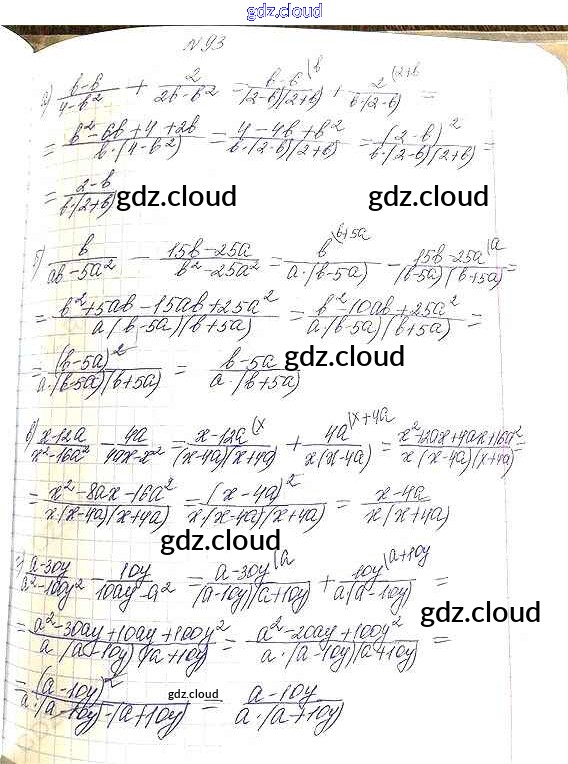 gdz.cloud
N 93
a) (b-6)/(4-b²) + 2/(2b-b²) = (b-6 (b)/((2-b)(2+b)) + (2 (2+b)/(b·(2-b)) =
= (b²-6b+4+2b)/(b·(4-b²)) = (4-4b+b²)/(b·(2-b)(2+b)) = (2-b)²/(b·(2-b)(2+b)) =
= (2-b)/(b·(2+b))
gdz.cloud gdz.cloud
б) b/(ab-5a²) - (15b-25a)/(b²-25a²) = (b (b+5a)/(a·(b-5a)) - (15b-25a (a)/((b-5a)(b+5a)) =
= (b²+5ab-15ab+25a²)/(a(b-5a)(b+5a)) = (b²-10ab+25a²)/(a·(b-5a)(b+5a)) =
= (b-5a)²/(a·(b-5a)(b+5a)) = (b-5a)/(a·(b+5a))
gdz.cloud
в) (x-12a)/(x²-16a²) - 4a/(4ax-x²) = (x-12a (x)/((x-4a)(x+4a)) + (4a (x+4a)/(x(x-4a)) = (x²-12ax+4ax+16a²)/(x(x-4a)(x+4a)) =
= (x²-8ax-16a²)/(x(x-4a)(x+4a)) = (x-4a)²/(x·(x-4a)(x+4a)) = (x-4a)/(x(x+4a))
gdz.cloud
г) (a-30y)/(a²-100y²) - 10y/(10ay-a²) = (a-30y (a)/((a-10y)(a+10y)) + (10y (a+10y)/(a(a-10y)) =
gdz.cloud
= (a²-30ay+10ay+100y²)/(a·(a-10y)(a+10y)) = (a²-20ay+100y²)/(a·(a-10y)(a+10y)) =
= (a-10y)²/(a·(a-10y)·(a+10y)) = (a-10y)/(a·(a+10y))
gdz.cloud